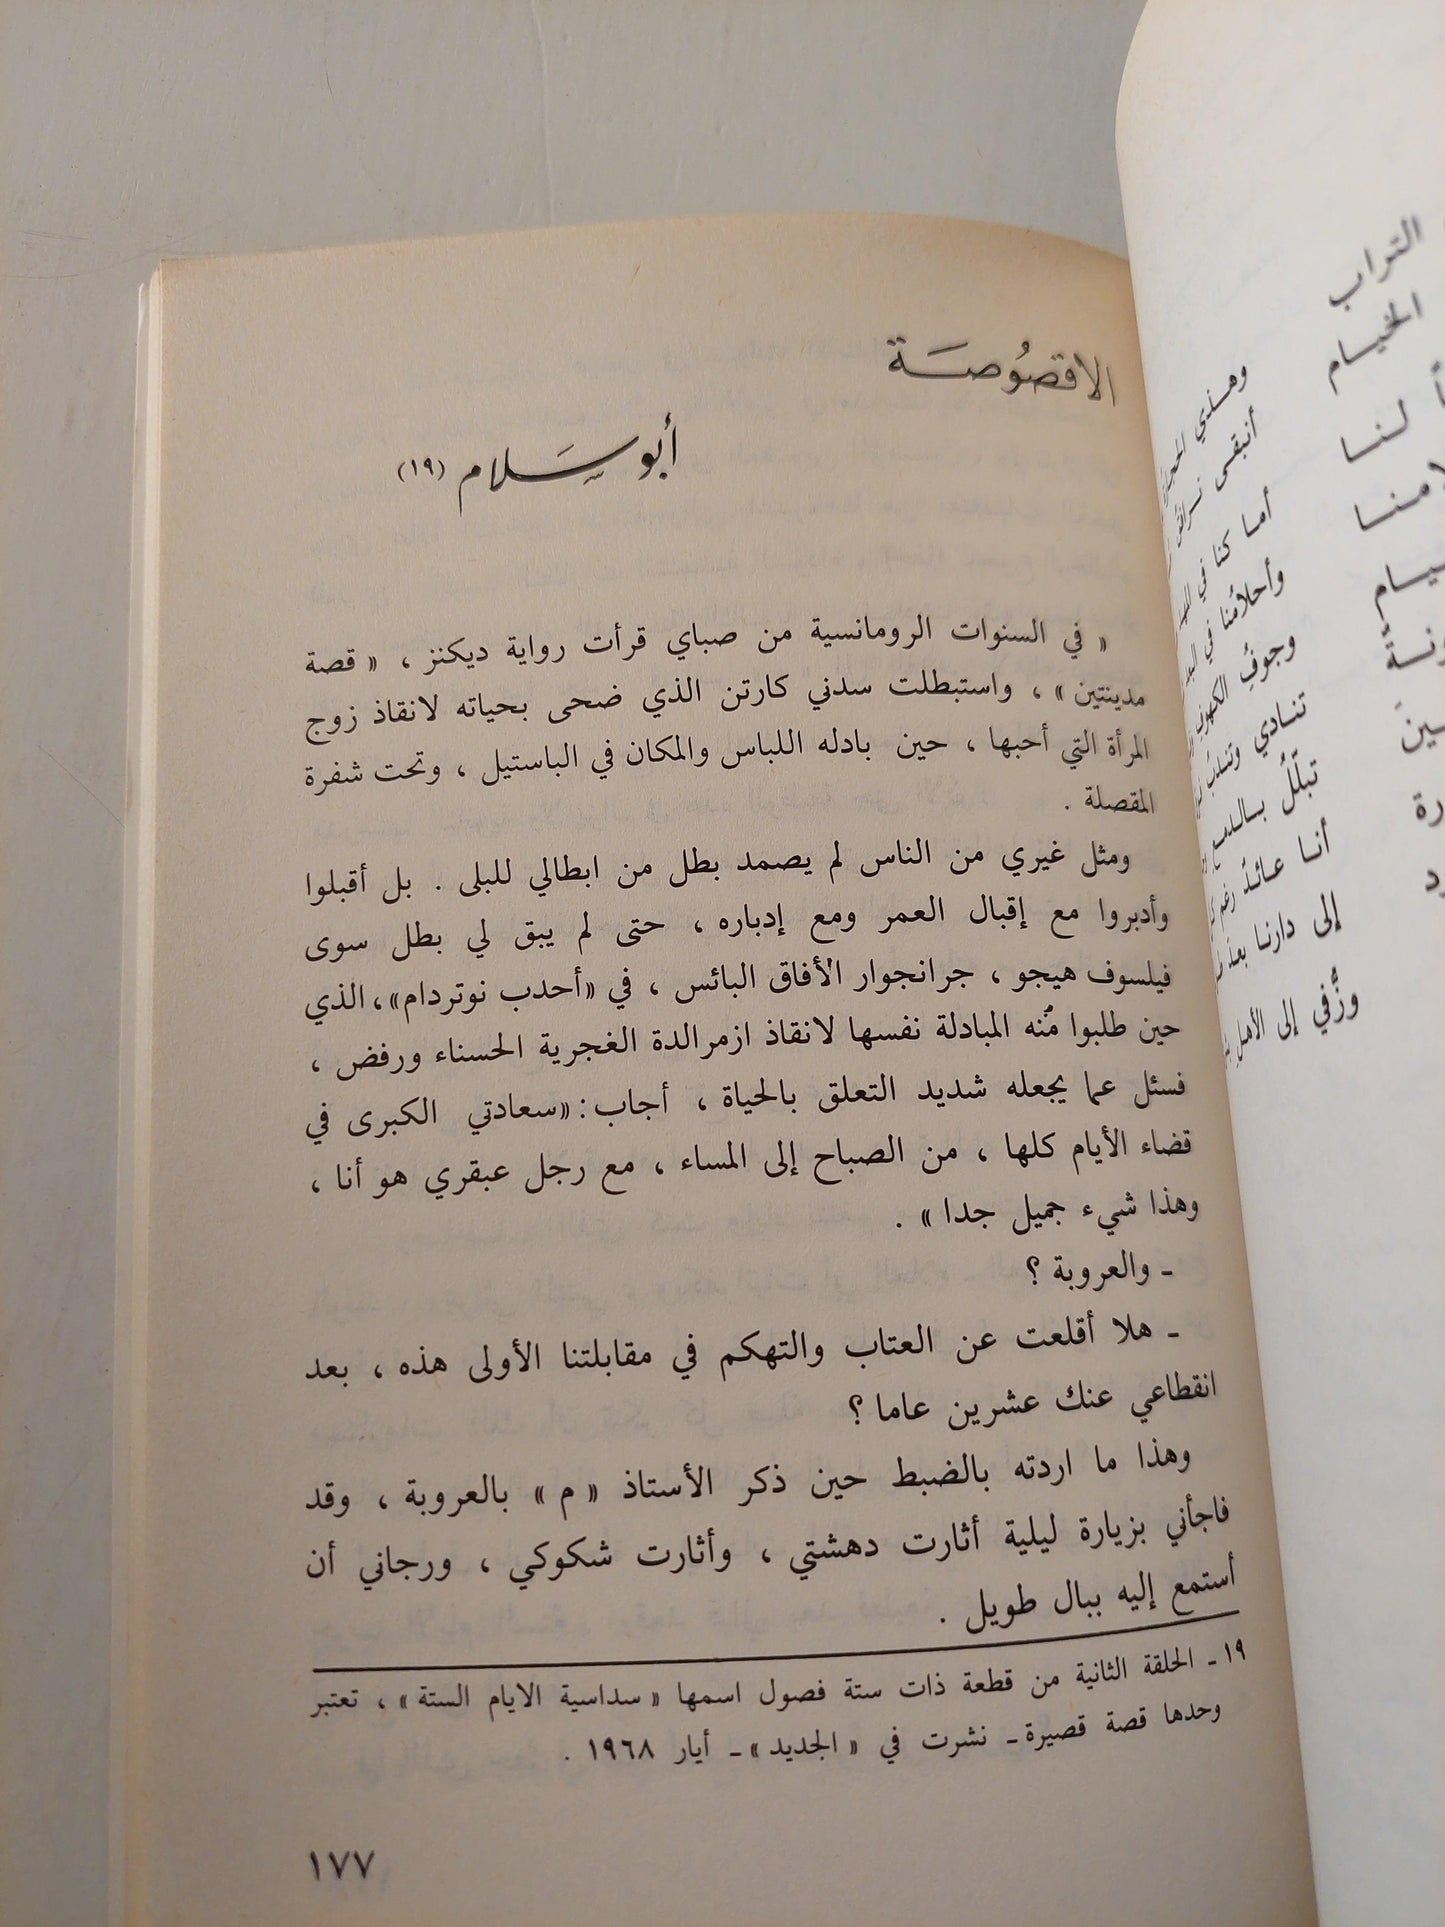 الاقصُوصَة
أبو سَلام (١٩)
« في السنوات الرومانسية من صباي قرأت رواية ديكنز ، « قصة
مدينتين » ، واستبطلت سدني كارتن الذي ضحى بحياته لانقاذ زوج
المرأة التي أحبها ، حين بادله اللباس والمكان في الباستيل ، وتحت شفرة
المقصلة .
ومثل غيري من الناس لم يصمد بطل من ابطالي للبلى . بل أقبلوا
وأدبروا مع إقبال العمر ومع إدباره ، حتى لم يبق لي بطل سوى
فيلسوف هيجو ، جرانجوار الأفاق البائس ، في «أحدب نوتردام»، الذي
حين طلبوا منه المبادلة نفسها لانقاذ ازمرالدة الغجرية الحسناء ورفض ،
فسئل عما يجعله شديد التعلق بالحياة ، أجاب : «سعادتي الكبرى في
قضاء الأيام كلها ، من الصباح إلى المساء ، مع رجل عبقري هو أنا ،
وهذا شيء جميل جدا » .
ـ والعروبة ؟
ـ هلا أقلعت عن العتاب والتهكم في مقابلتنا الأولى هذه ، بعد
انقطاعي عنك عشرين عاما ؟
وهذا ما اردته بالضبط حين ذكر الأستاذ « م » بالعروبة ، وقد
فاجأني بزيارة ليلية أثارت دهشتي ، وأثارت شكوكي ، ورجاني أن
أستمع إليه ببال طويل .
١٩ ـ الحلقة الثانية من قطعة ذات ستة فصول اسمها « سداسية الايام الستة » ، تعتبر
وحدها قصة قصيرة ـ نشرت في « الجديد » ـ أيار ١٩٦٨ .
١٧٧
التراب
الخيام
لنا
وهذي
أنبقى
أما كنا في
وأحلامُنا في
وجوفُ
تنادي
تبلّلُ
أنا عائدٌ رغم
إلى دارنا بعد
وزُفي إلى الأهل